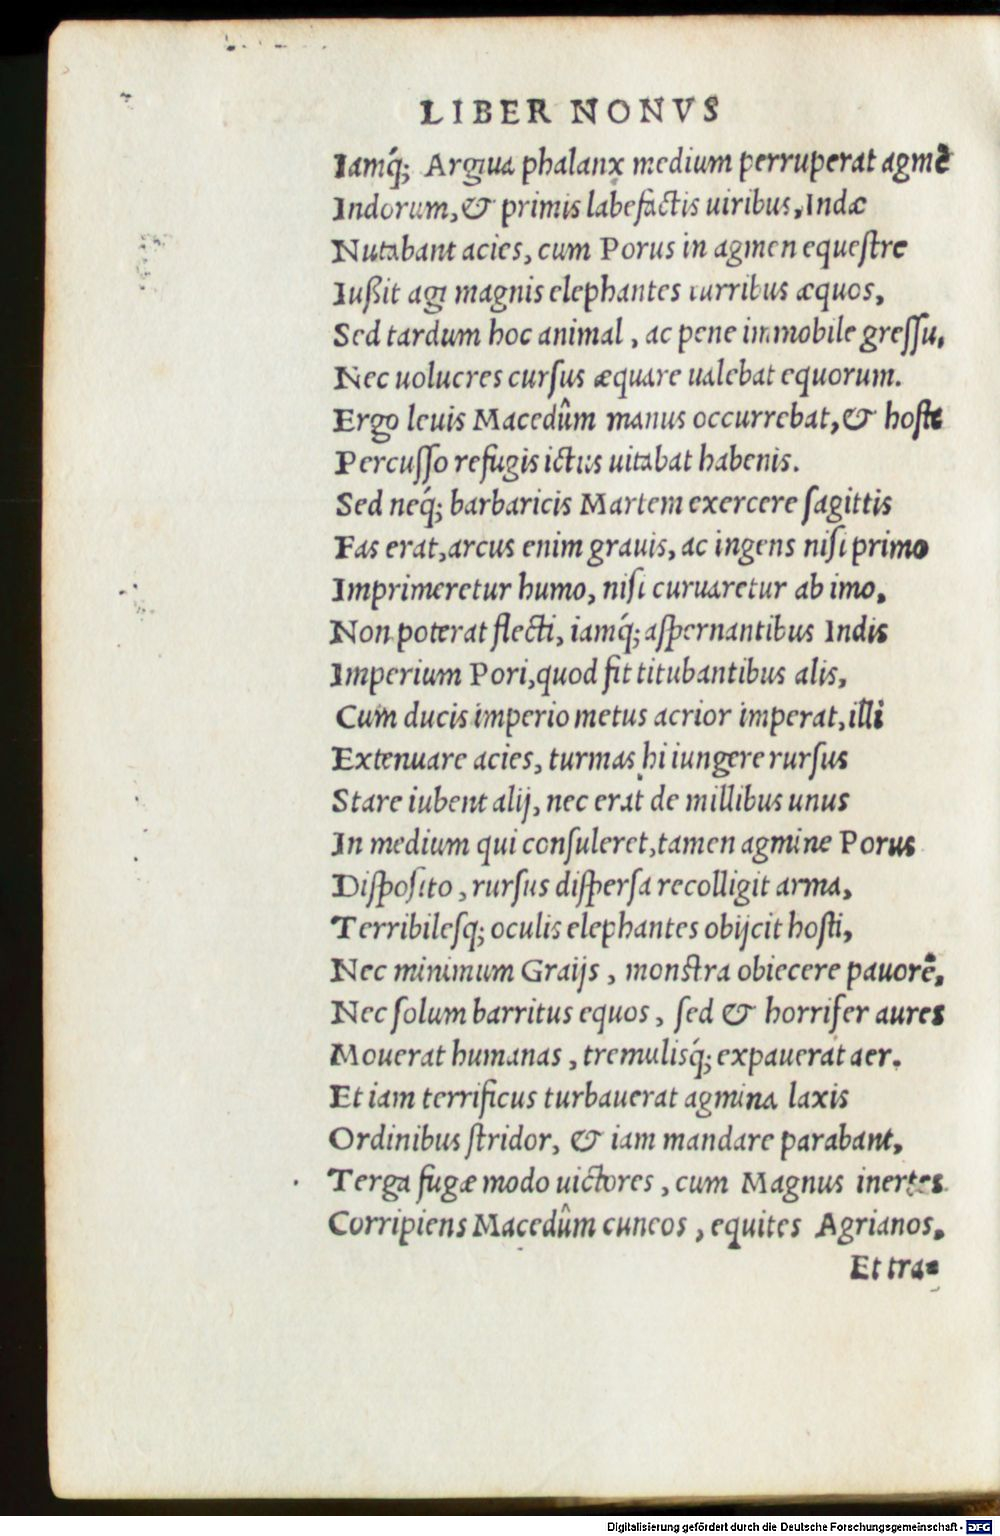 LIBER NONVS
Iamq́; Argiua phalanx medium perruperat agmẽ
Indorum, & primis labefactis uiribus, Indæ
Nutabant acies, cum Porus in agmen equeſtre
Iußit agi magnis elephantes turribus æquos,
Sed tardum hoc animal, ac pene immobile greſſu,
Nec uolucres curſus æquare ualebat equorum.
Ergo leuis Macedûm manus occurrebat, & hoſte
Percuſſo refugis ictus uitabat habenis.
Sed neq́; barbaricis Martem exercere ſagittis
Fas erat, arcus enim grauis, ac ingens niſi primo
Imprimeretur humo, niſi curuaretur ab imo,
Non poterat flecti, iamq́; aſpernantibus Indis
Imperium Pori, quod fit titubantibus alis,
Cum ducis imperio metus acrior imperat, illi
Extenuare acies, turmas hi iungere rurſus
Stare iubent alij, nec erat de millibus unus
In medium qui conſuleret, tamen agmine Porus
Diſpoſito, rurſus diſperſa recolligit arma,
Terribileſq; oculis elephantes obijcit hoſti,
Nec minimum Graijs, monſtra obiecere pauorẽ,
Nec ſolum barritus equos, ſed & horrifer aures
Mouerat humanas, tremulisq́; expauerat aer.
Et iam terrificus turbauerat agmina laxis
Ordinibus ſtridor, & iam mandare parabant,
Terga fugæ modo uictores, cum Magnus inertes
Corripiens Macedûm cuneos, equites Agrianos,
Et tra=
Digitalisierung gefördert durch die Deutsche Forschungsgemeinschaft - DFG